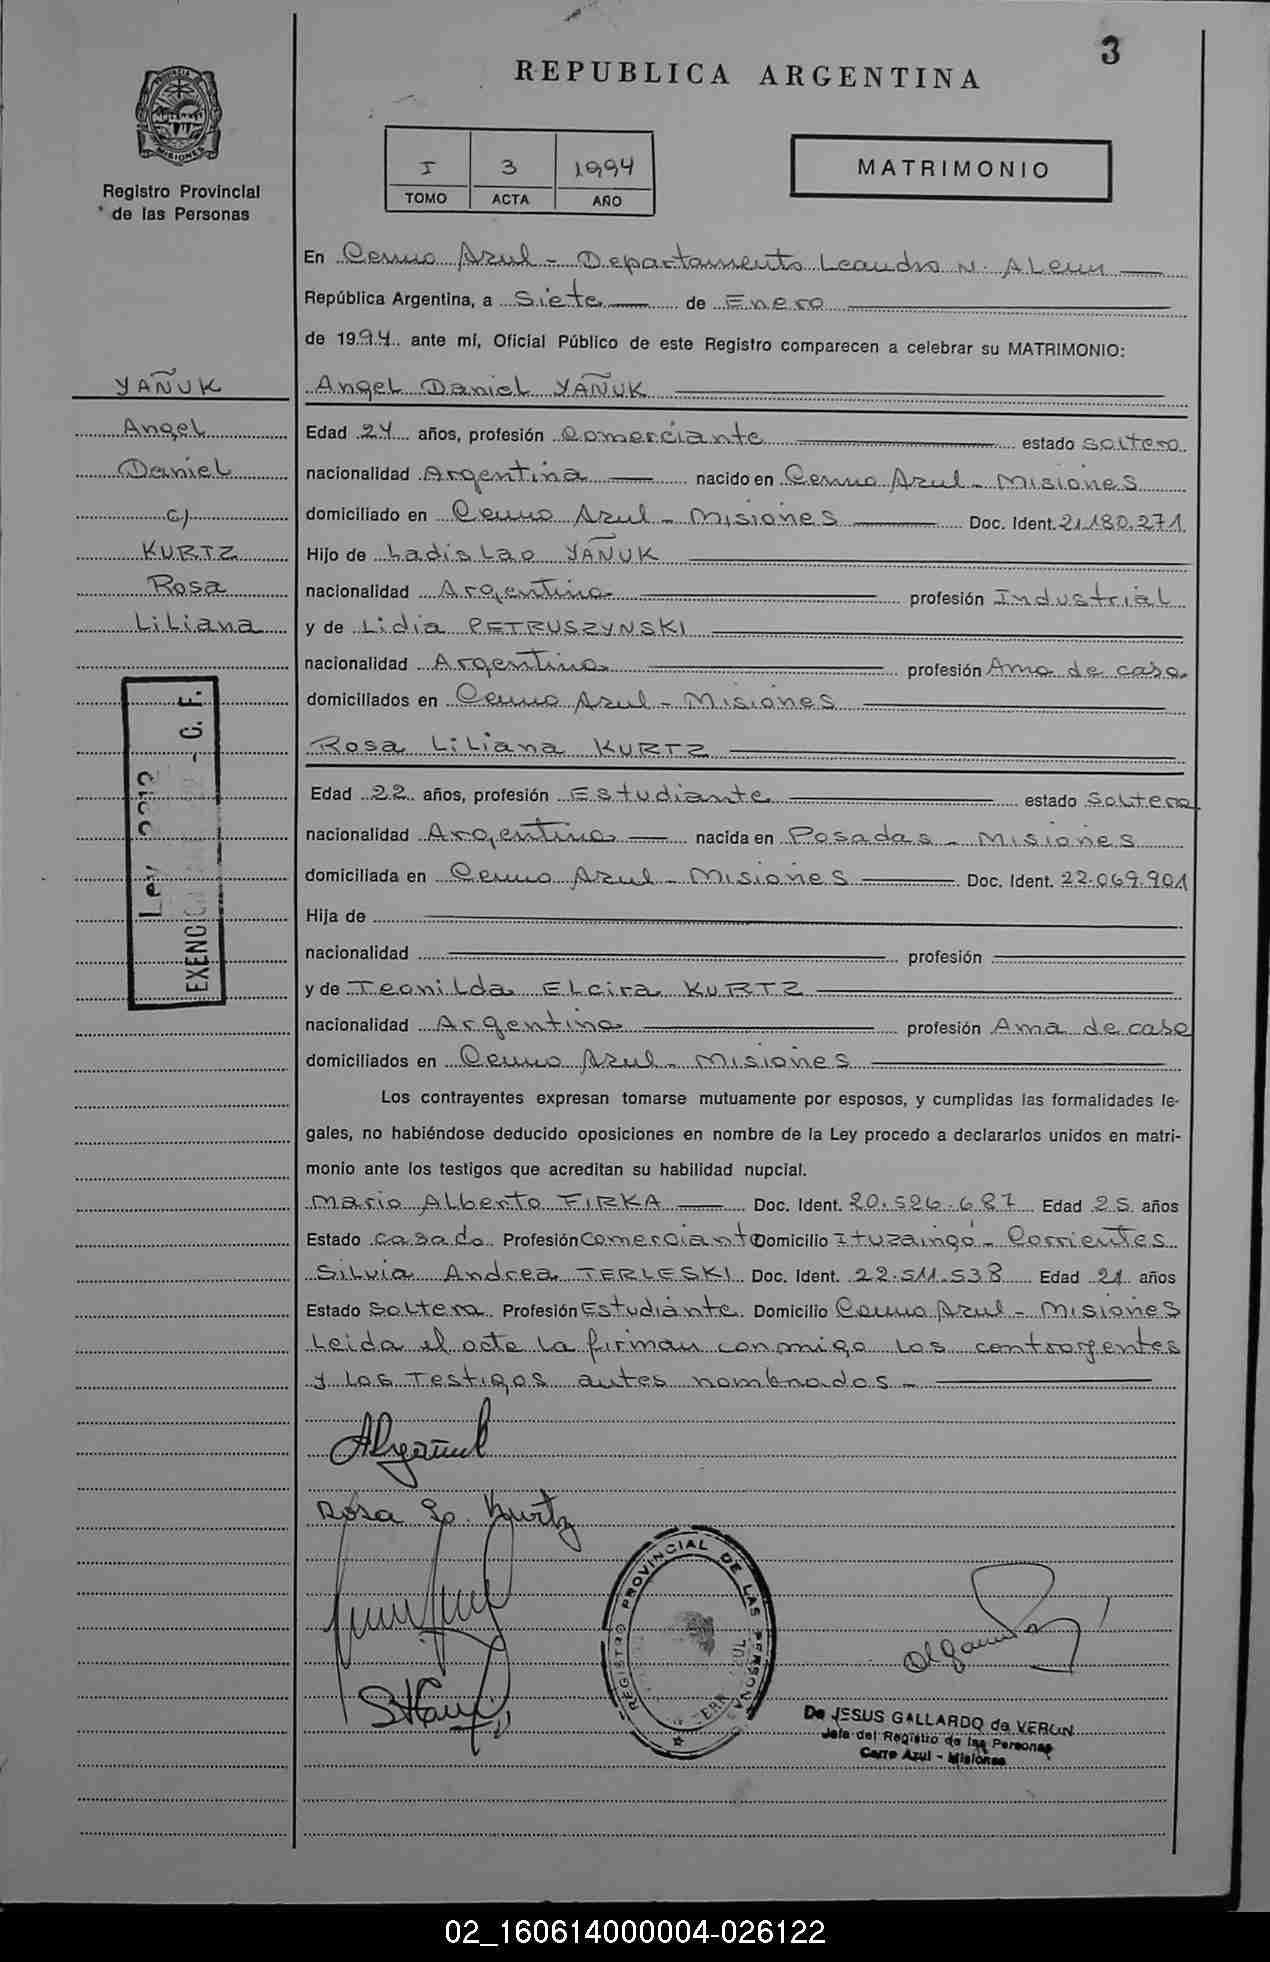 3
REPUBLICA ARGENTINA
PROVINCIA DE MISIONES
Registro Provincial
de las Personas
I 3 1994
TOMO ACTA AÑO
MATRIMONIO
En Cerro Azul - Departamento Leandro N. Alem
República Argentina, a Siete de Enero
de 1994 ante mí, Oficial Público de este Registro comparecen a celebrar su MATRIMONIO:
YAÑUK
Angel
Daniel
c/
KURTZ
Rosa
Liliana
Ley
EXENCI - G. F.
Angel Daniel YAÑUK
Edad 24 años, profesión Comerciante estado soltero
nacionalidad Argentina nacido en Cerro Azul - Misiones
domiciliado en Cerro Azul - Misiones Doc. Ident. 21.180.271
Hijo de Ladislao YAÑUK
nacionalidad Argentina profesión Industrial
y de Lidia PETRUSZYNSKI
nacionalidad Argentina profesión Ama de casa
domiciliados en Cerro Azul - Misiones
Rosa Liliana KURTZ
Edad 22 años, profesión Estudiante estado Soltera
nacionalidad Argentina nacida en Posadas - Misiones
domiciliada en Cerro Azul - Misiones Doc. Ident. 22.069.901
Hija de
nacionalidad profesión
y de Teonilda Elcira KURTZ
nacionalidad Argentina profesión Ama de casa
domiciliados en Cerro Azul - Misiones
Los contrayentes expresan tomarse mutuamente por esposos, y cumplidas las formalidades le-
gales, no habiéndose deducido oposiciones en nombre de la Ley procedo a declararlos unidos en matri-
monio ante los testigos que acreditan su habilidad nupcial.
Mario Alberto FIRKA Doc. Ident. 20.526.687 Edad 25 años
Estado casado Profesión Comerciante Domicilio Ituzaingó - Corrientes
Silvia Andrea TERLESKI Doc. Ident. 22.511.538 Edad 21 años
Estado Soltera Profesión Estudiante Domicilio Cerro Azul - Misiones
Leida el acta la firman conmigo los contrayentes
y los Testigos antes nombrados -
Rosa L. Kurtz
REGISTRO PROVINCIAL DE LAS PERSONAS
De JESUS GALLARDO de VERON
Jefe del Registro de las Personas
Cerro Azul - Misiones
02_160614000004-026122